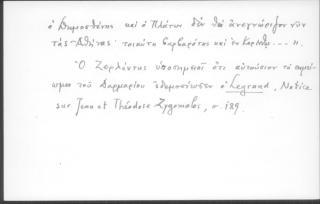 ὁ Δημοσθένης καί ὁ Πλάτων δέν θά ἀνεγνώριζον νῦν
τάς Ἀθήνας· τοιαύτη βαρβαρότης καί ἐν Κορίνθῳ --- ".
Ὁ Ζερλέντης ὑποσημειοῖ ὅτι αὐτούσιον τό σημείωμα
τοῦ Δαμμαρίου ἐδημοσίευσεν ὁ Legrand, Notice
sur Jean et Théodose Zygomalas, σ. 189.